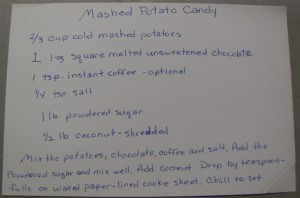 Mashed Potato Candy
2/3 cup cold mashed potatoes
1 1-oz square melted unsweetened chocolate
1 tsp. instant coffee - optional
1/4 tsp. salt
1 lb. powdered sugar
1/2 lb coconut - shredded
Mix the potatoes, chocolate, coffee and salt. Add the
powdered sugar and mix well. Add coconut Drop by teaspoon-
fulls on waxed paper-lined cookie sheet. Chill to set